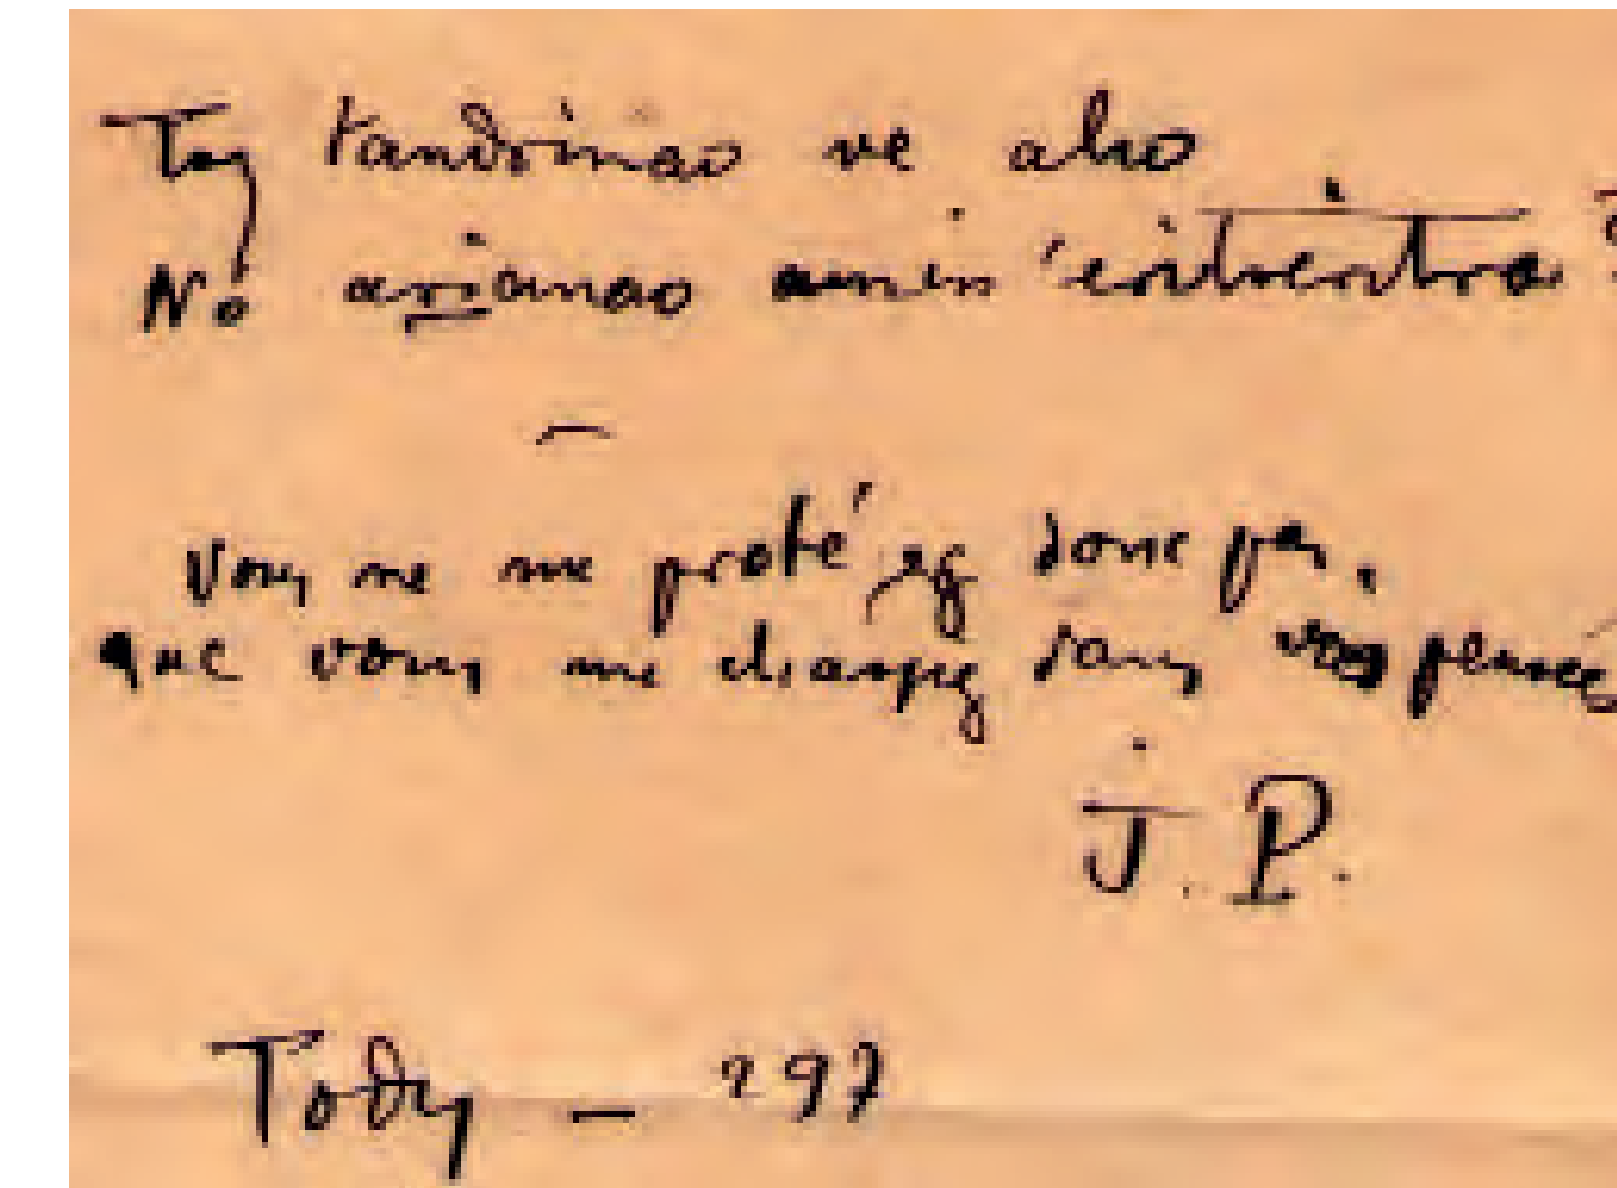 Tsy tandrinao ve aho
No arianao amin'
—
Vous ne me protégez donc pas,
que vous me changez dans vos pensées
J. P.
Tody — 297